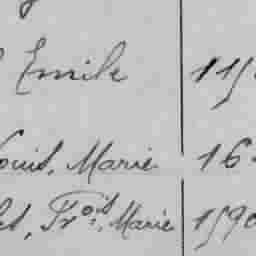 Emile 115
Louis, Marie 16
et, Frois, Marie 1590